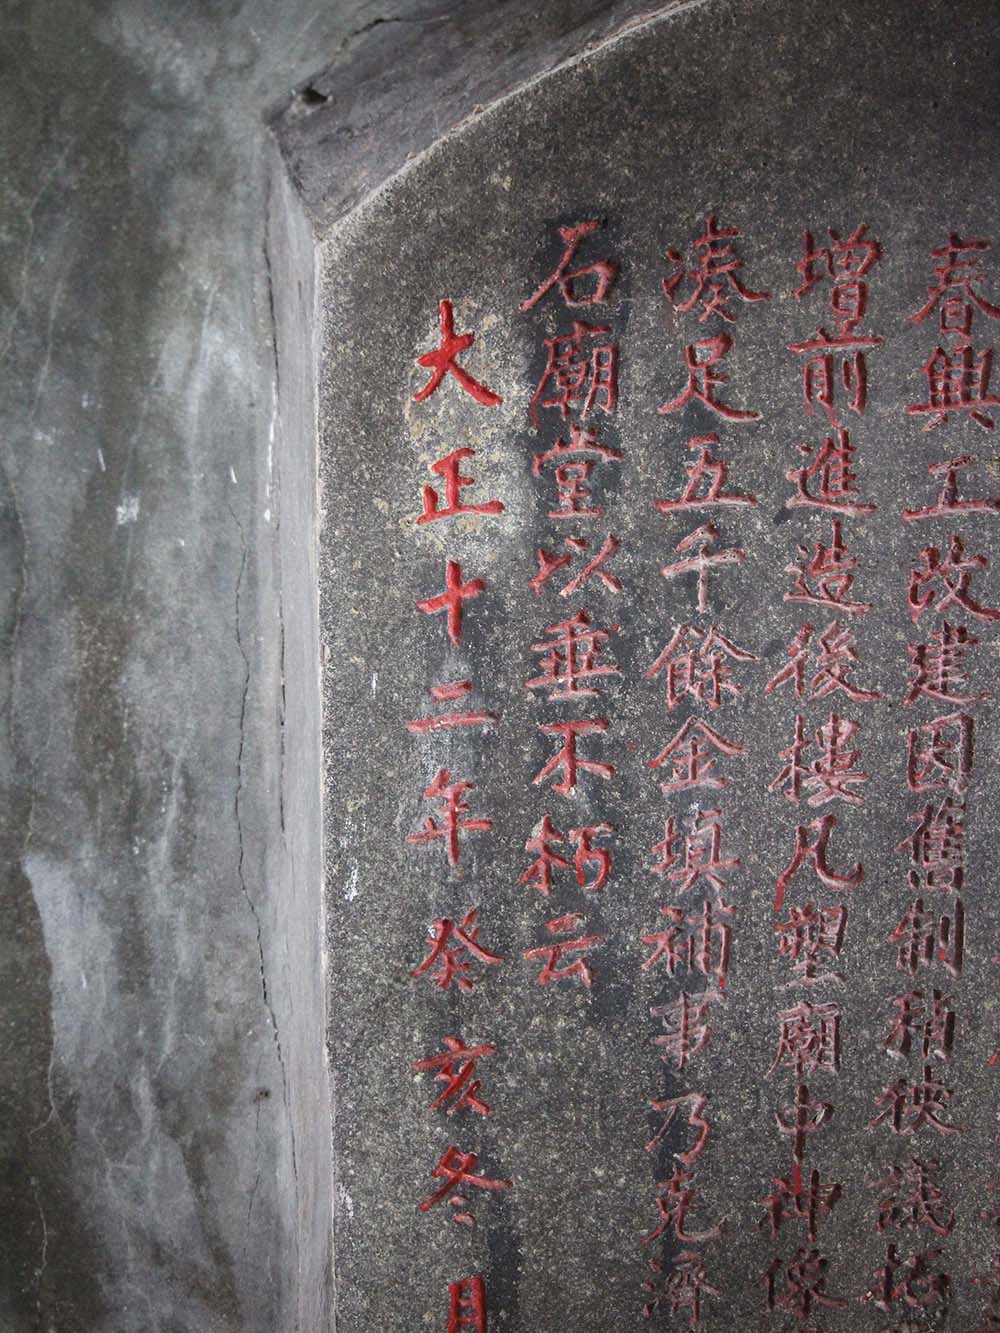 春興工改建因舊制稍狹議拓
增前進造後樓凡塑廟中神像
湊足五千餘金填補事乃克濟
石廟堂以垂不朽云
大正十二年癸亥冬月